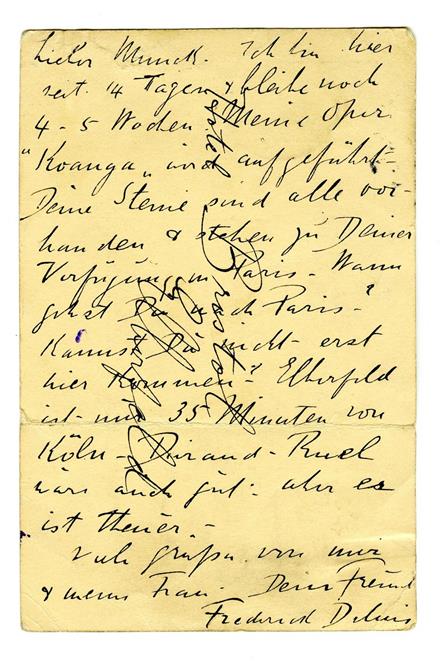 Lieber Munch. Ich bin hier
seit 14 Tagen & bleibe noch
4-5 Wochen Meine Oper
"Koanga" wird aufgeführt-
Deine Steine sind alle vor-
handen & stehen zu Deiner
Verfügung in Paris- Wann
gehst Du nach Paris-?
Kannst Du nicht erst
hier kommen-? Elberfeld
ist nur 35 Minuten von
Köln- Durand-Ruel
wäre auch gut: aber es
ist theuer.-
Viele grüße von mir
& meine Frau- Dein Freund
Frederick Delius
Hotel Bristol
Elberfeld